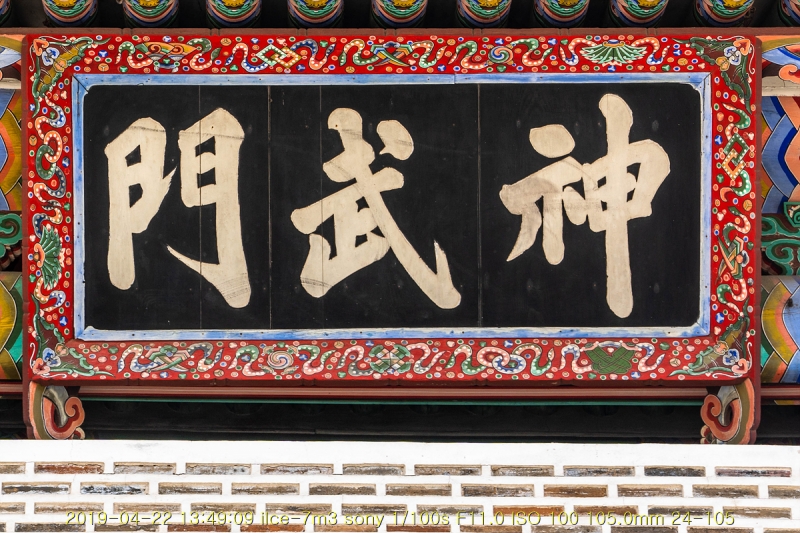 神武門
2019-04-22 13:49:09 ilce-7m3 sony 1/100s F11.0 ISO 100 105.0mm 24-105